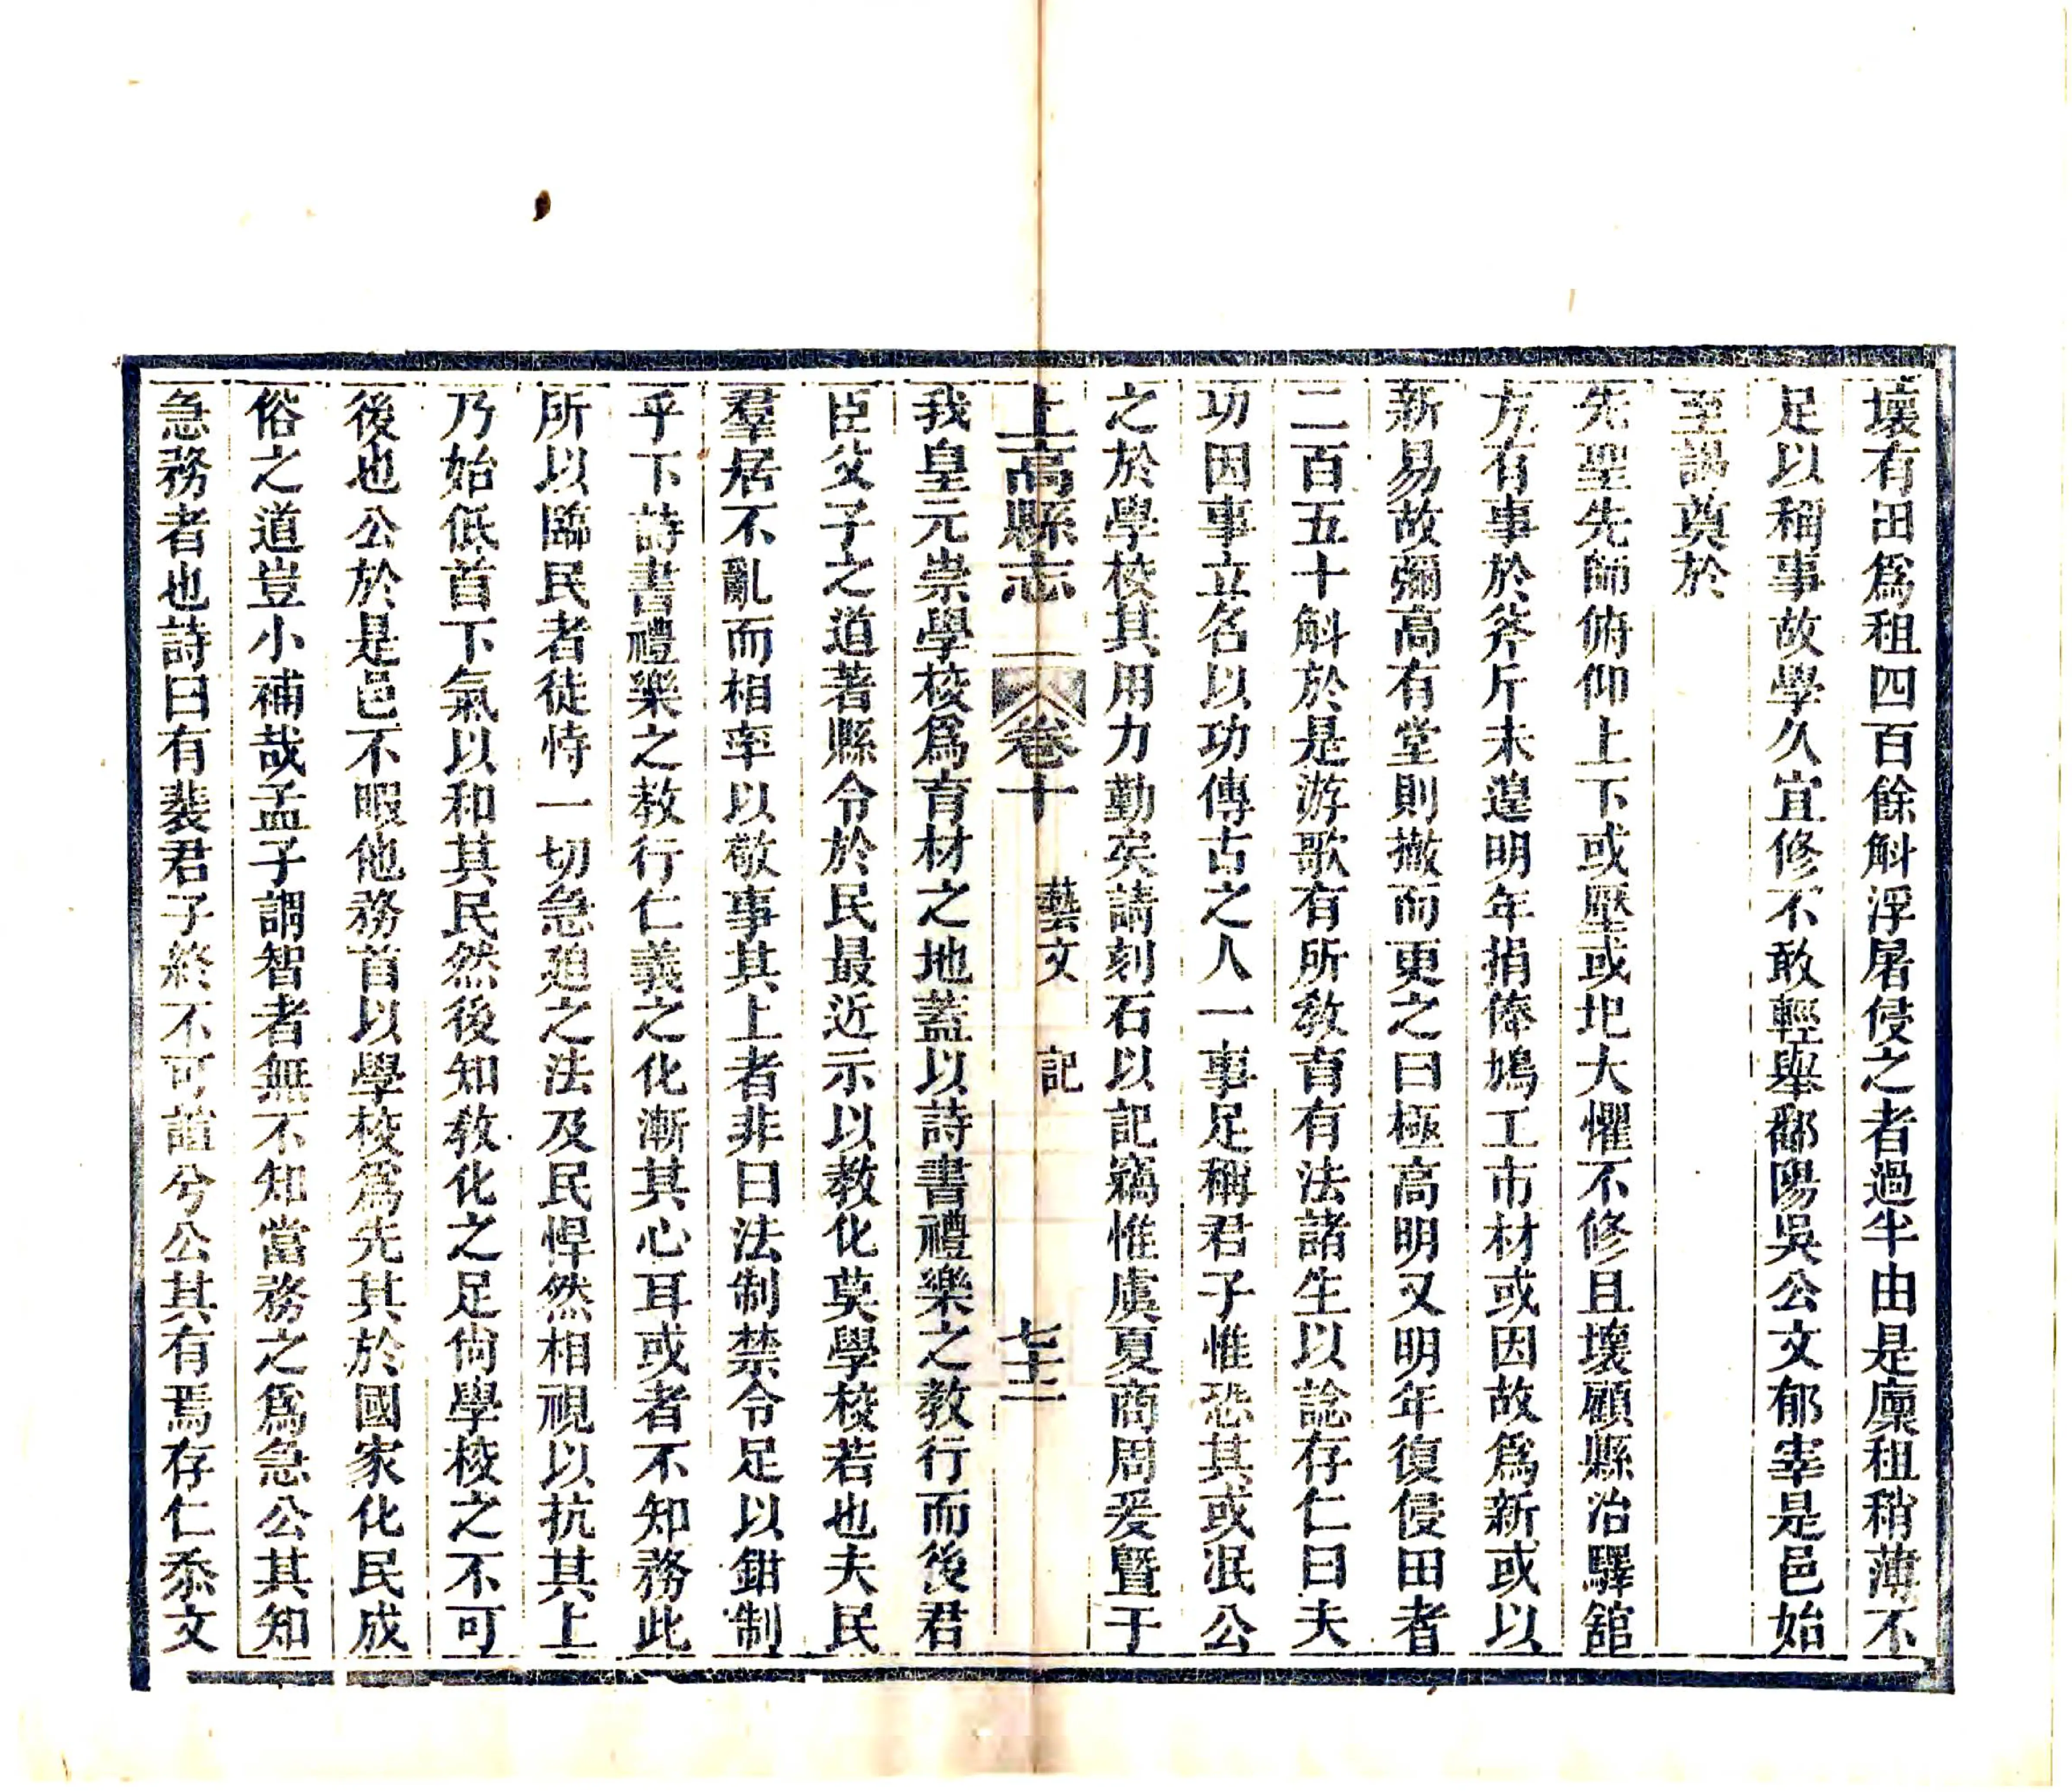 壞有田爲租四百餘斛浮屠侵之者過半由是廩租稍薄不
足以稱事故學久宜修不敢輕舉鄱陽吳公文郁宰是邑始
至謁奠於
先聖先師俯仰上下或壓或圯大懼不修且壞顧縣治驛舘
方有事於斧斤未遑明年捐俸鳩工市材或因故爲新或以
新易故彌高有堂則撤而更之曰極高明又明年復侵田者
二百五十斛於是游歌有所敎育有法諸生以諗存仁曰夫
功因事立名以功傳古之人一事足稱君子惟恐其或泯公
之於學校其用力勤矣請刻石以記竊惟虞夏商周爰曁于
上高縣志 卷十 藝文 記 七十二
我皇元崇學校爲育材之地蓋以詩書禮樂之教行而後君
臣父子之道著縣令於民最近示以教化莫學校若也夫民
羣居不亂而相率以敬事其上者非曰法制禁令足以鉗制
乎下詩書禮樂之教行仁義之化漸其心耳或者不知務此
所以臨民者徒恃一切急廹之法及民悍然相視以抗其上
乃始低首下氣以和其民然後知敎化之足尙學校之不可
後也公於是邑不暇他務首以學校爲先其於國家化民成
俗之道豈小補哉孟子謂智者無不知當務之爲急公其知
急務者也詩曰有裴君子終不可諠兮公其有焉存仁忝文